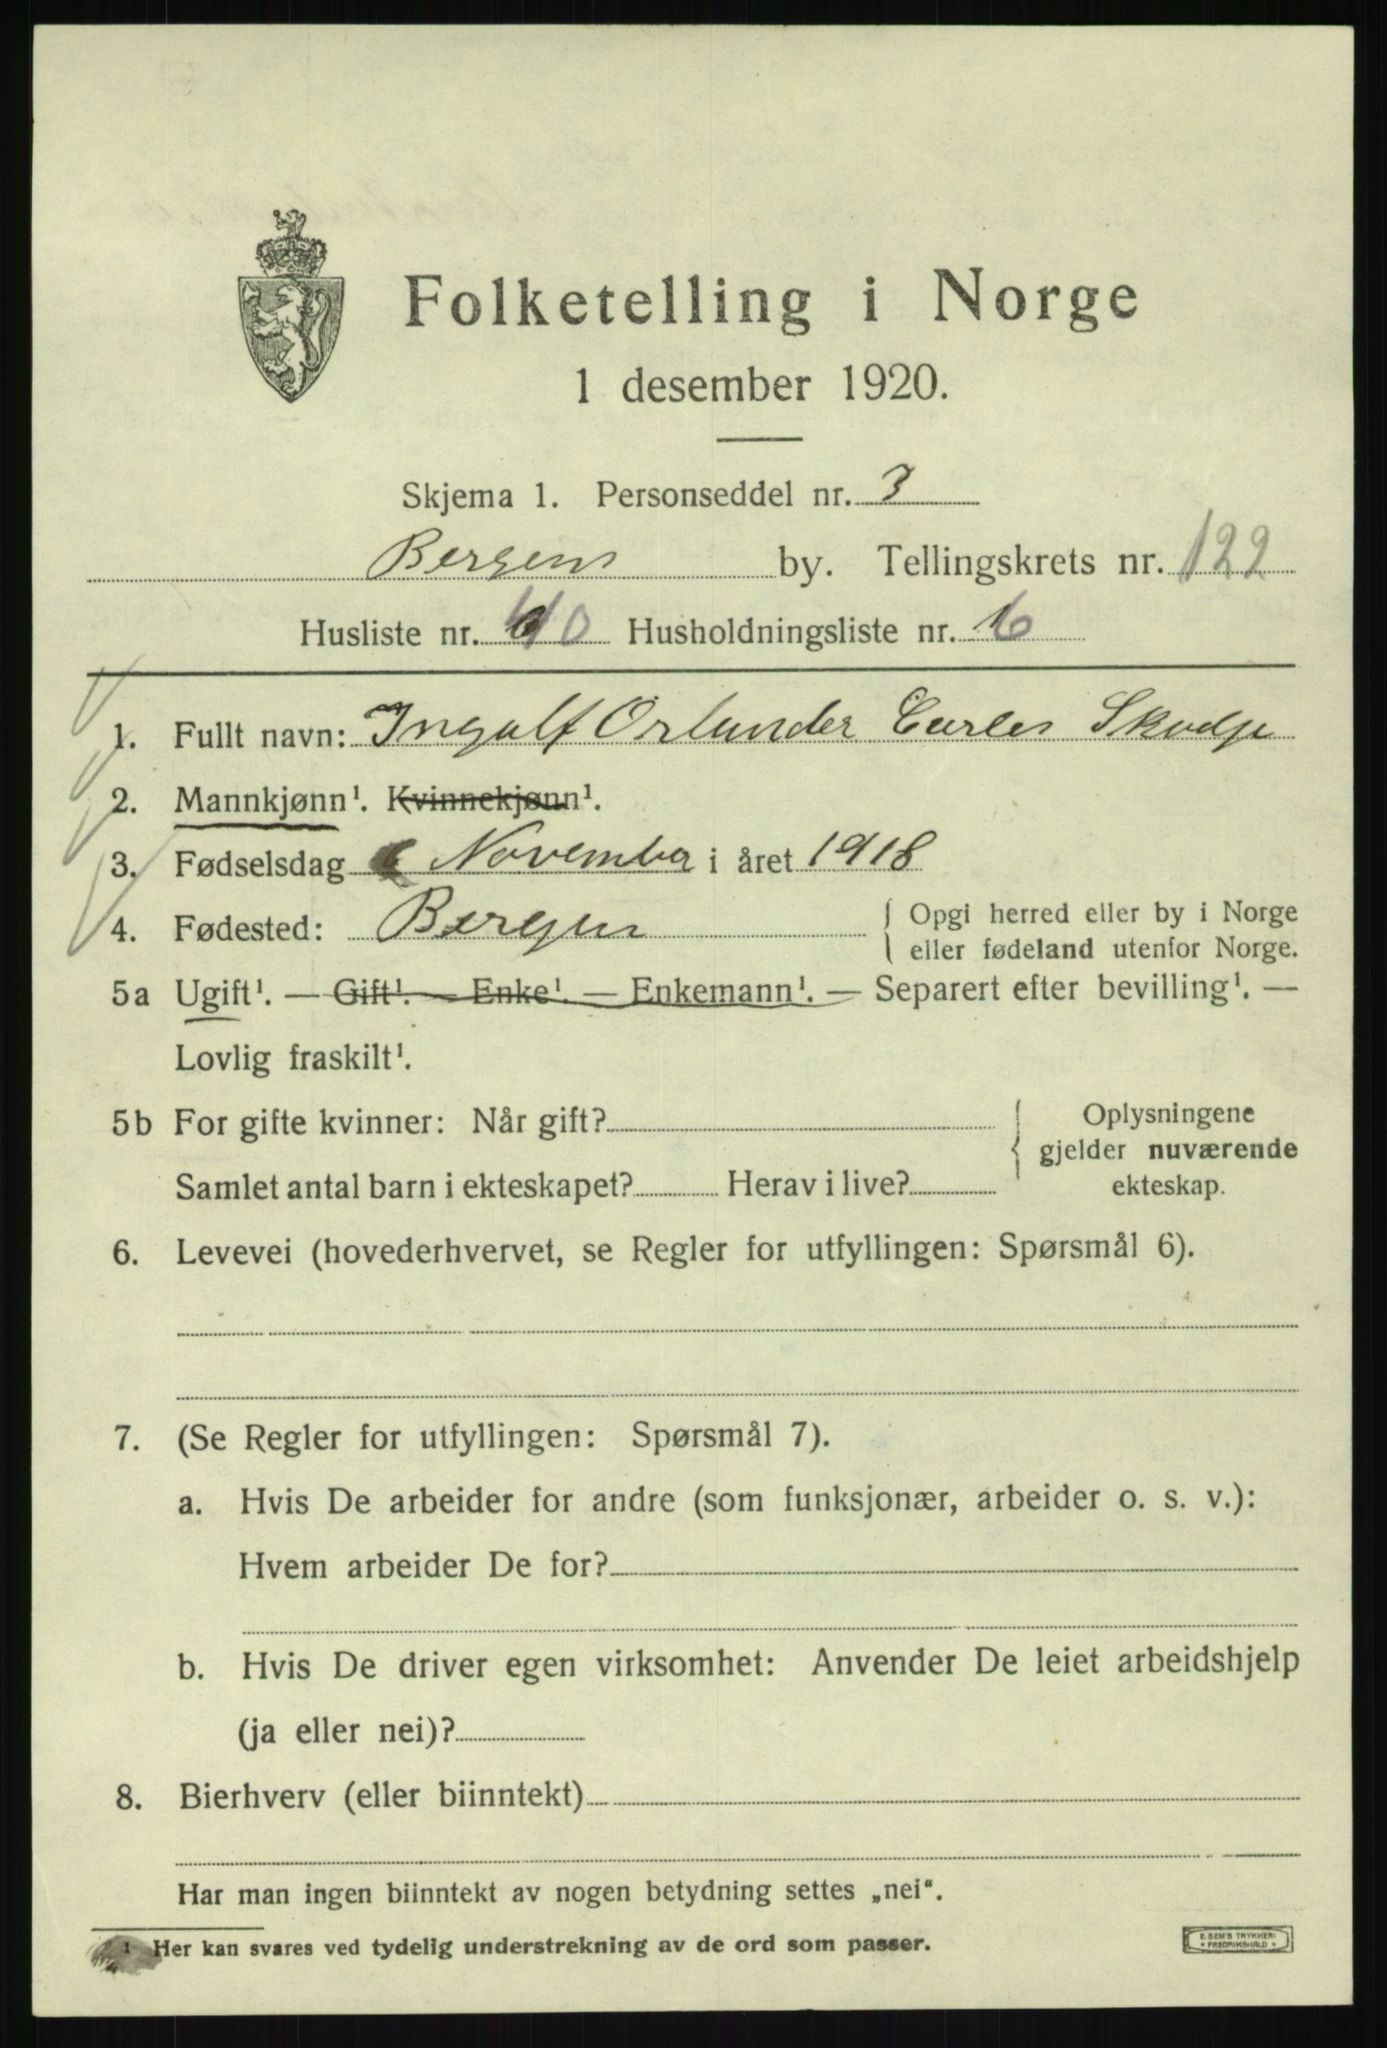 Folketelling i Norge
1 desember 1920.
Skjema 1. Personseddel nr. 3
Bergens by. Tellingskrets nr. 122
Husliste nr. 40 Husholdningsliste nr. 6
1. Fullt navn: Ingolf Orlander Carles Skodje
2. Mannkjønn¹. Kvinnekjønn¹.
3. Fødselsdag 6 November i året 1918
4. Fødested: Bergen { Opgi herred eller by i Norge
eller fødeland utenfor Norge.
5a Ugift¹. — Gift¹. — Enke¹. — Enkemann¹. — Separert efter bevilling¹. —
Lovlig fraskilt¹.
5b For gifte kvinner: Når gift? { Oplysningene
gjelder nuværende
Samlet antal barn i ekteskapet? Herav i live? ekteskap.
6. Levevei (hovederhvervet, se Regler for utfyllingen: Spørsmål 6).
7. (Se Regler for utfyllingen: Spørsmål 7).
a. Hvis De arbeider for andre (som funksjonær, arbeider o. s. v.):
Hvem arbeider De for?
b. Hvis De driver egen virksomhet: Anvender De leiet arbeidshjelp
(ja eller nei)?
8. Bierhverv (eller biinntekt)
Har man ingen biinntekt av nogen betydning settes „nei“.
¹ Her kan svares ved tydelig understrekning av de ord som passer.
E. SEM'S TRYKKERI
• FREDRIKSHALD •